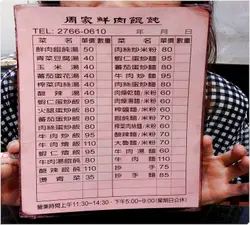 周家鮮肉餛飩
TEL: 2766-0610 年 月 日
菜 名 單價 數量 菜 名 單價 數量
鮮肉餛飩湯 50 肉絲炒米粉 80
青菜豆腐湯 40 蝦仁蛋炒麵 95
玉米湯 40 蕃茄蛋炒麵 80
蕃茄蛋花湯 40 牛肉炒麵 95
榨菜肉絲湯 40 肉絲炒麵 80
酸辣湯 40 肉燥乾麵/米粉 40
蝦仁蛋炒飯 95 餛飩湯麵/米粉 60
火腿蛋炒飯 80 蕃茄蛋麵/米粉 60
肉絲蛋炒飯 80 榨菜肉絲麵/米粉 60
蕃茄蛋炒飯 80 酸辣湯麵/米粉 70
牛肉炒飯 95 大滷麵/米粉 70
牛肉燴飯 110 牛肉湯麵 80
牛肉湯餛飩 80 牛肉麵 110
酸辣餛飩 110 抄手 75
燙青菜 35 抄手麵 85
營業時間上午11:30~14:30‧下午5:00~9:00(星期日公休)